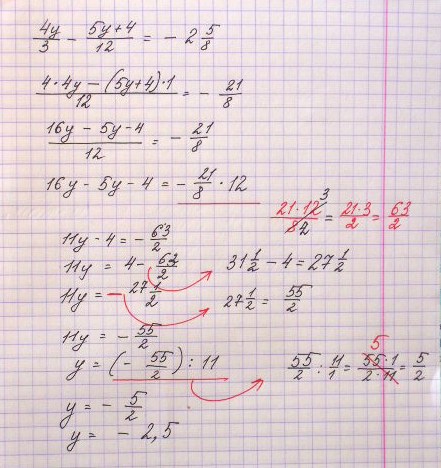 4y/3 - 5y+4/12 = - 2 5/8
4·4y-(5y+4)·1/12 = - 21/8
16y - 5y - 4/12 = - 21/8
16y - 5y - 4 = - 21/8 · 12
21·12 3/8 2 = 21·3/2 = 63/2
11y - 4 = - 63/2
11y = 4 - 63/2
31 1/2 - 4 = 27 1/2
11y = - 27 1/2
27 1/2 = 55/2
11y = - 55/2
y = (- 55/2) : 11
55/2 : 11/1 = 5 55·1/2·11 = 5/2
y = - 5/2
y = - 2,5